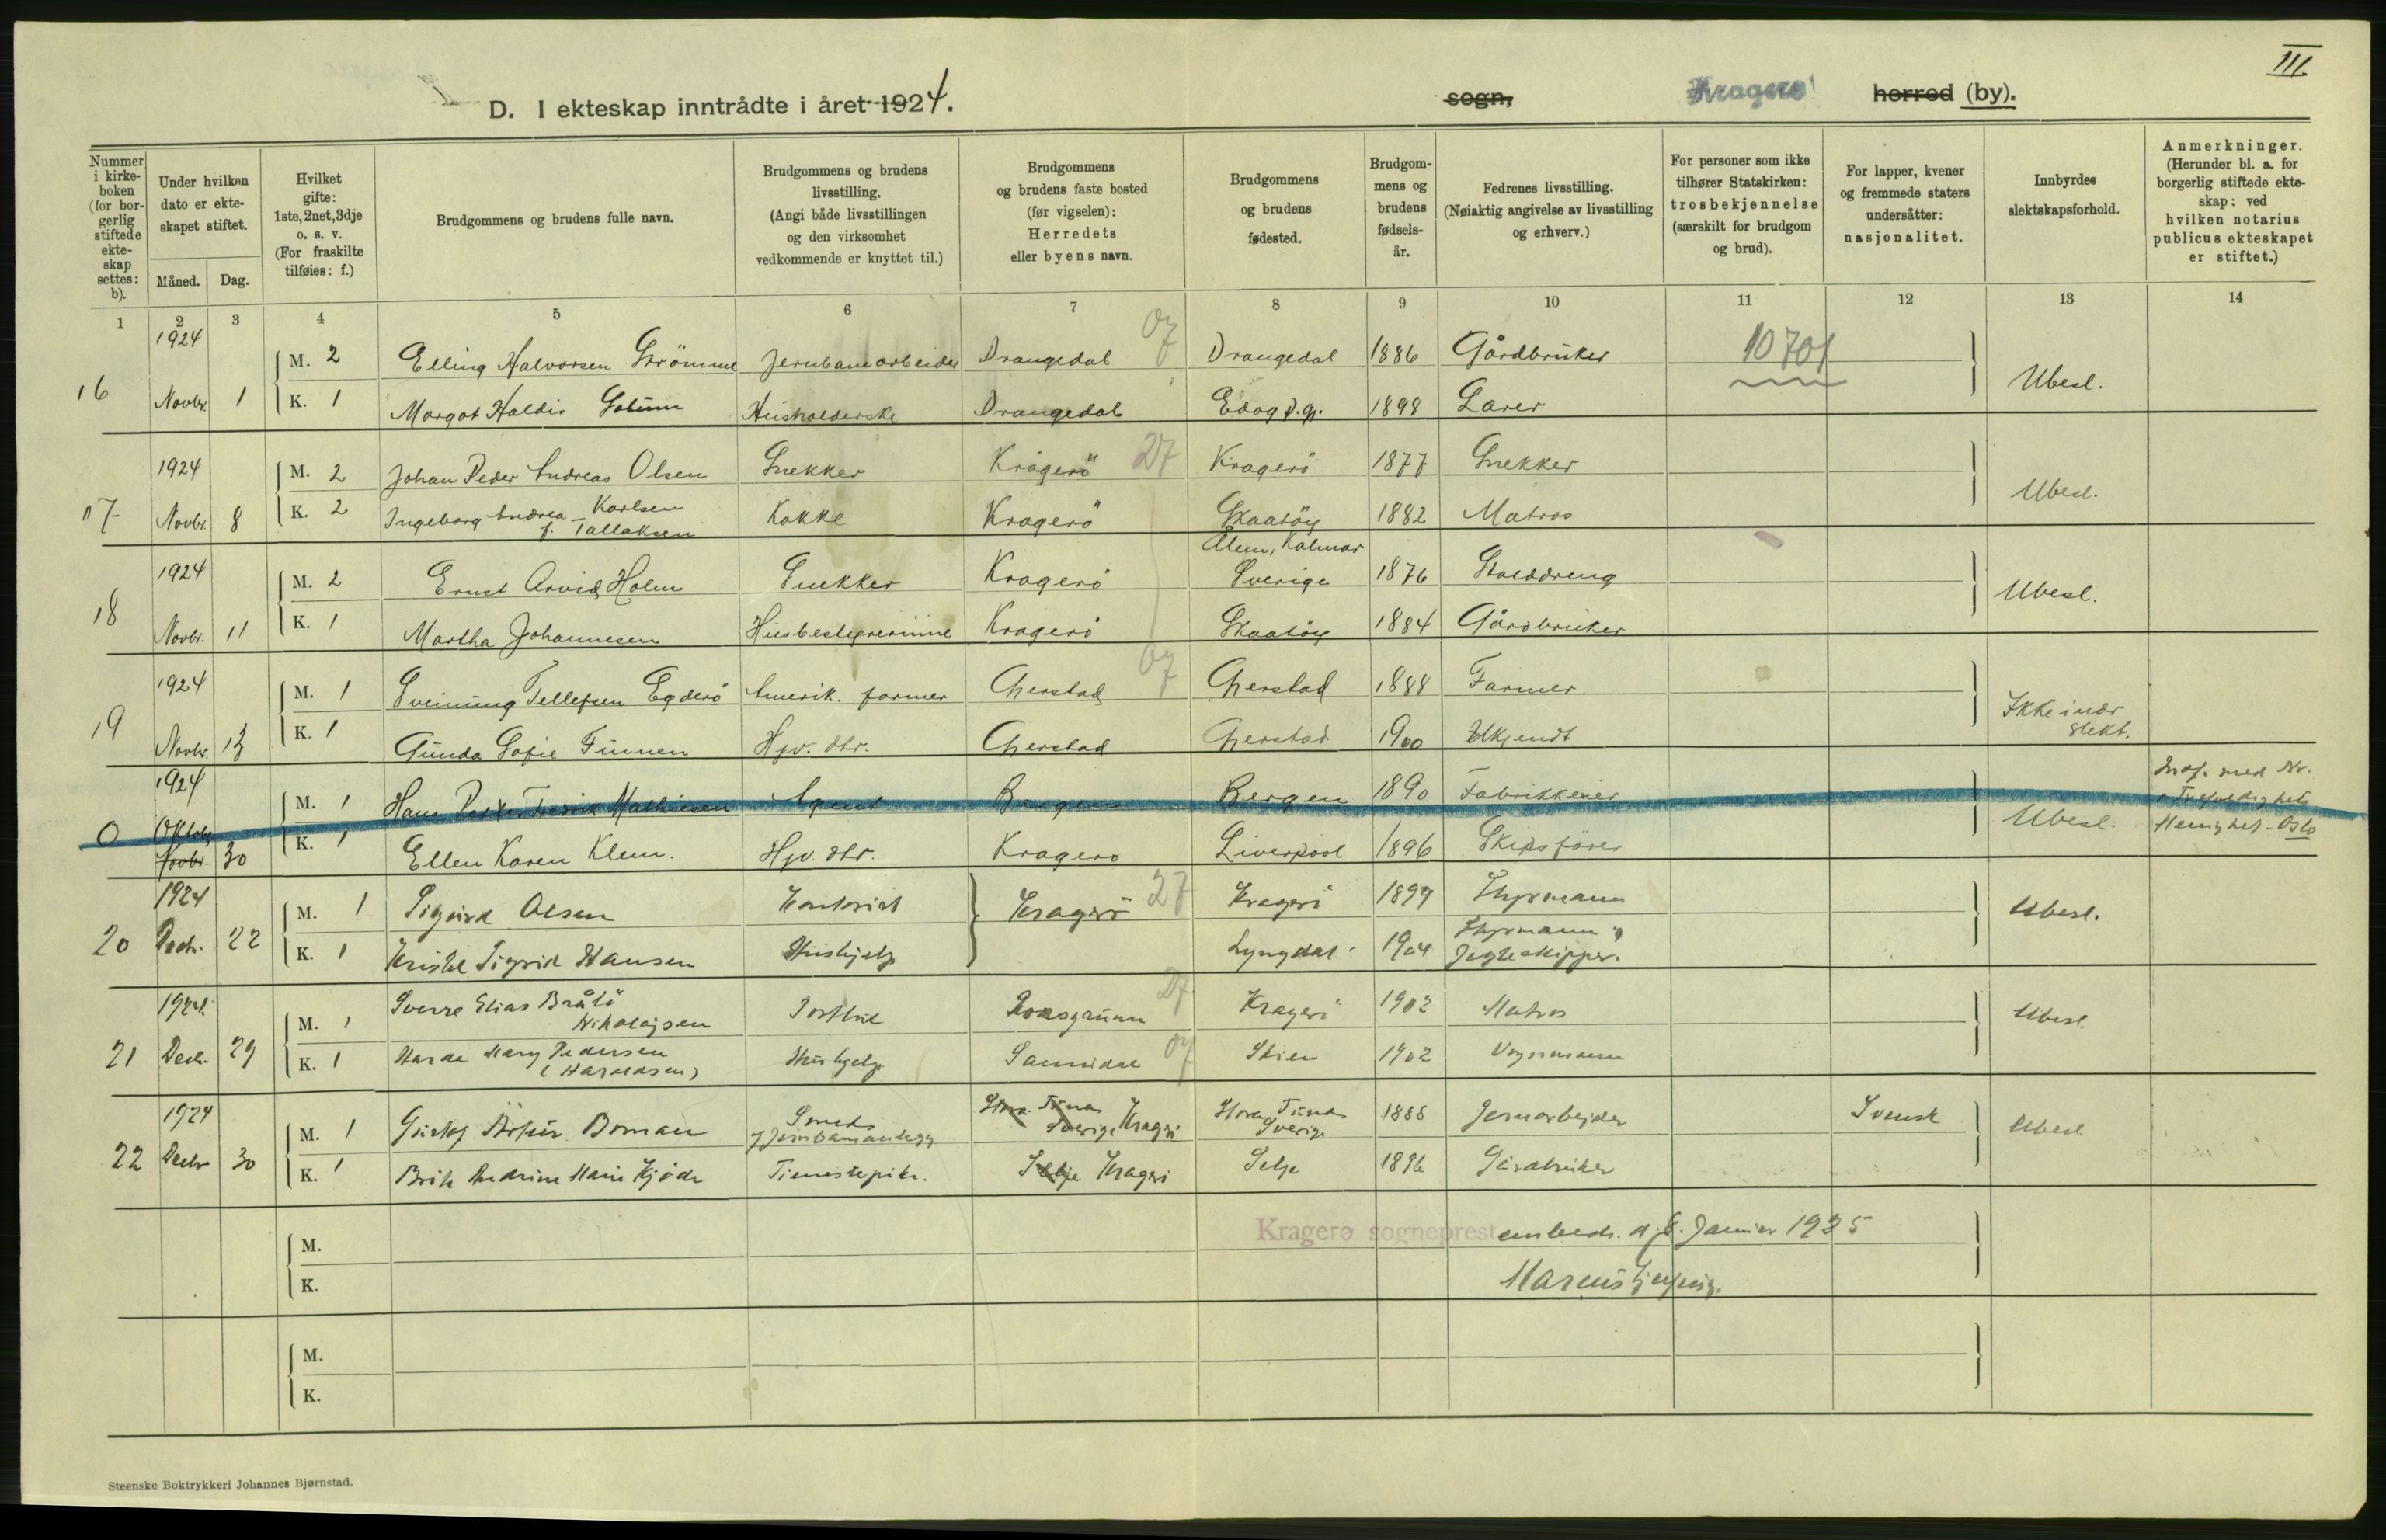 III
D. I ekteskap inntrådte i året 1924. sogn, Kragerø herred (by).
Nummer i kirkeboken (for borgerlig stiftede ekteskap settes: b).
Under hvilken dato er ekteskapet stiftet.
Måned. Dag.
Hvilket gifte: 1ste, 2net, 3dje o. s. v. (For fraskilte tilføies: f.)
Brudgommens og brudens fulle navn.
Brudgommens og brudens livsstilling. (Angi både livsstillingen og den virksomhet vedkommende er knyttet til.)
Brudgommens og brudens faste bosted (før vigselen): Herredets eller byens navn.
Brudgommens og brudens fødested.
Brudgommens og brudens fødselsår.
Fedrenes livsstilling. (Nøiaktig angivelse av livsstilling og erhverv.)
For personer som ikke tilhører Statskirken: trosbekjennelse (særskilt for brudgom og brud).
For lapper, kvener og fremmede staters undersåtter: nasjonalitet.
Innbyrdes slektskapsforhold.
Anmerkninger. (Herunder bl. a. for borgerlig stiftede ekteskap: ved hvilken notarius publicus ekteskapet er stiftet.)
1 2 3 4 5 6 7 8 9 10 11 12 13 14
1924 M. 2 Elling Halvorsen Strömme Jernbanearbeider Drangedal 07 Drangedal 1886 Gårdbruker 10701
16 Novbr. 1 K. 1 Margot Haldis Husholderske Drangedal Edøy 1898 Lærer Ubesl.
1924 M. 2 Johan Peder Andreas Olsen Snekker Kragerö 27 Kragerö 1877 Snekker
17 Novbr. 8 K. 2 Ingeborg Andrea Karlsen f. Tallaksen Kokke Kragerö Skaatöy 1882 Matros Ubesl.
1924 M. 2 Ernst Arvid Holm Snekker Kragerö Ålem, Kalmar Sverige 1876 Stalddreng
18 Novbr. 11 K. 1 Martha Johannesen Husbestyrerinne Kragerö Skaatöy 1884 Gårdbruker Ubesl.
1924 M. 1 Sveinung Tellefsen Egderö Amerik. farmer Gjerstad 07 Gjerstad 1888 Farmer
19 Novbr. 13 K. 1 Gunda Sofie Finnen Hjv. dtr. Gjerstad Gjerstad 1900 Ukjendt Ikke i nær slekt.
1924 M. 1 Hans Fredrik Mathiesen Agent Bergen Bergen 1890 Fabrikkeier
0 Oktobr. Novbr. 30 K. 1 Ellen Karen Klem. Hjv. dtr. Kragerø Liverpool 1896 Skipsförer Ubesl. med Nr. Trefoldighets Menighet - Oslo
1924 M. 1 Sigurd Olsen Kontorist Kragerö 27 Kragerö 1899 Styrmann
20 Decbr. 22 K. 1 Sigrid Hansen Hushjelp Lyngdal 1904 Styrmann Jagteskipper. Ubesl.
1924 M. 1 Sverre Elias Bråtö Nikolajsen Postbud Porsgrunn 27 Kragerö 1902 Matros
21 Decbr. 29 K. 1 Mary Pedersen (Haraldsen) Hushjelp Sannidal 07 Skien 1902 Vognmann Ubesl.
1924 M. 1 Gustaf Artur Boman Smed Stora Tuna Sverige Kragerö Stora Tuna Sverige 1888 Jernarbejder Svensk
22 Decbr 30 K. 1 Andrine Marie Tjenestepike. Selje Kragerö Selje 1896 Gårdbruker Ubesl.
M. Kragerø sogneprestembede. d. 8. Januar 1925
K. Marcus
M.
K.
Steenske Boktrykkeri Johannes Bjørnstad.